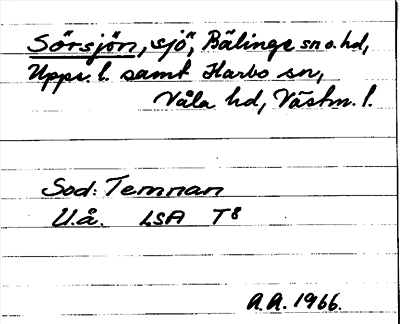 Sörsjön, sjö, Bälinge sn o. hd,
Upps. l. samt Harbo sn,
Våla hd, Västm. l.
Sod: Temnan
U.å. LSA T8
A.A. 1966.